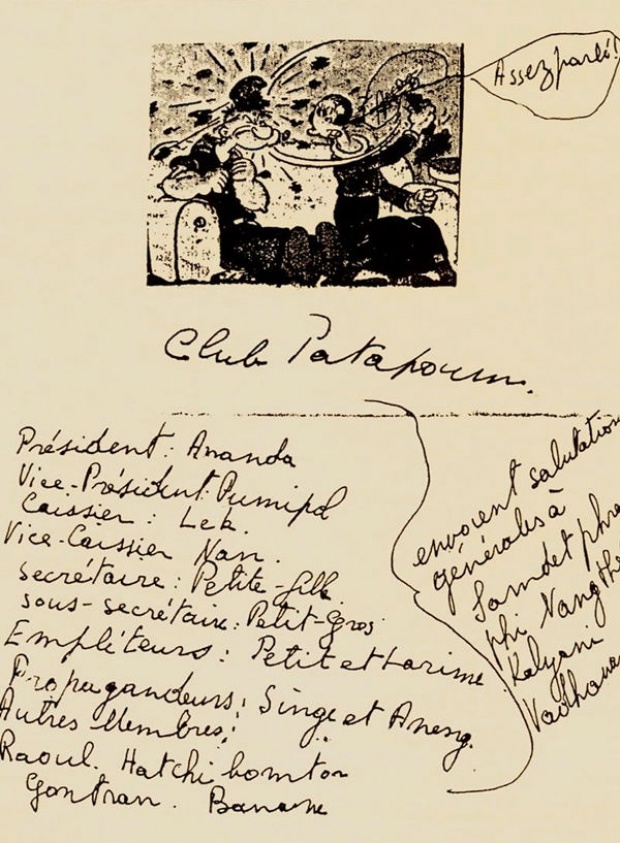 Assez parlé!
Club Patapoum.
Président: Ananda
Vice-Président: Pumipol
Caissier: Lek.
Vice-Caissier Nan.
Secrétaire: Petite-fille
sous-secrétaire: Petit-Gros
Empléteurs: Petit et Larime
Propagandeurs: Singe et Aneng.
Autres Membres:
Raoul. Hatchi bomton
Gontran. Banane
envoient salutation
générales à
Samdet phra
phi Nang the
Kalyani
Vadhana